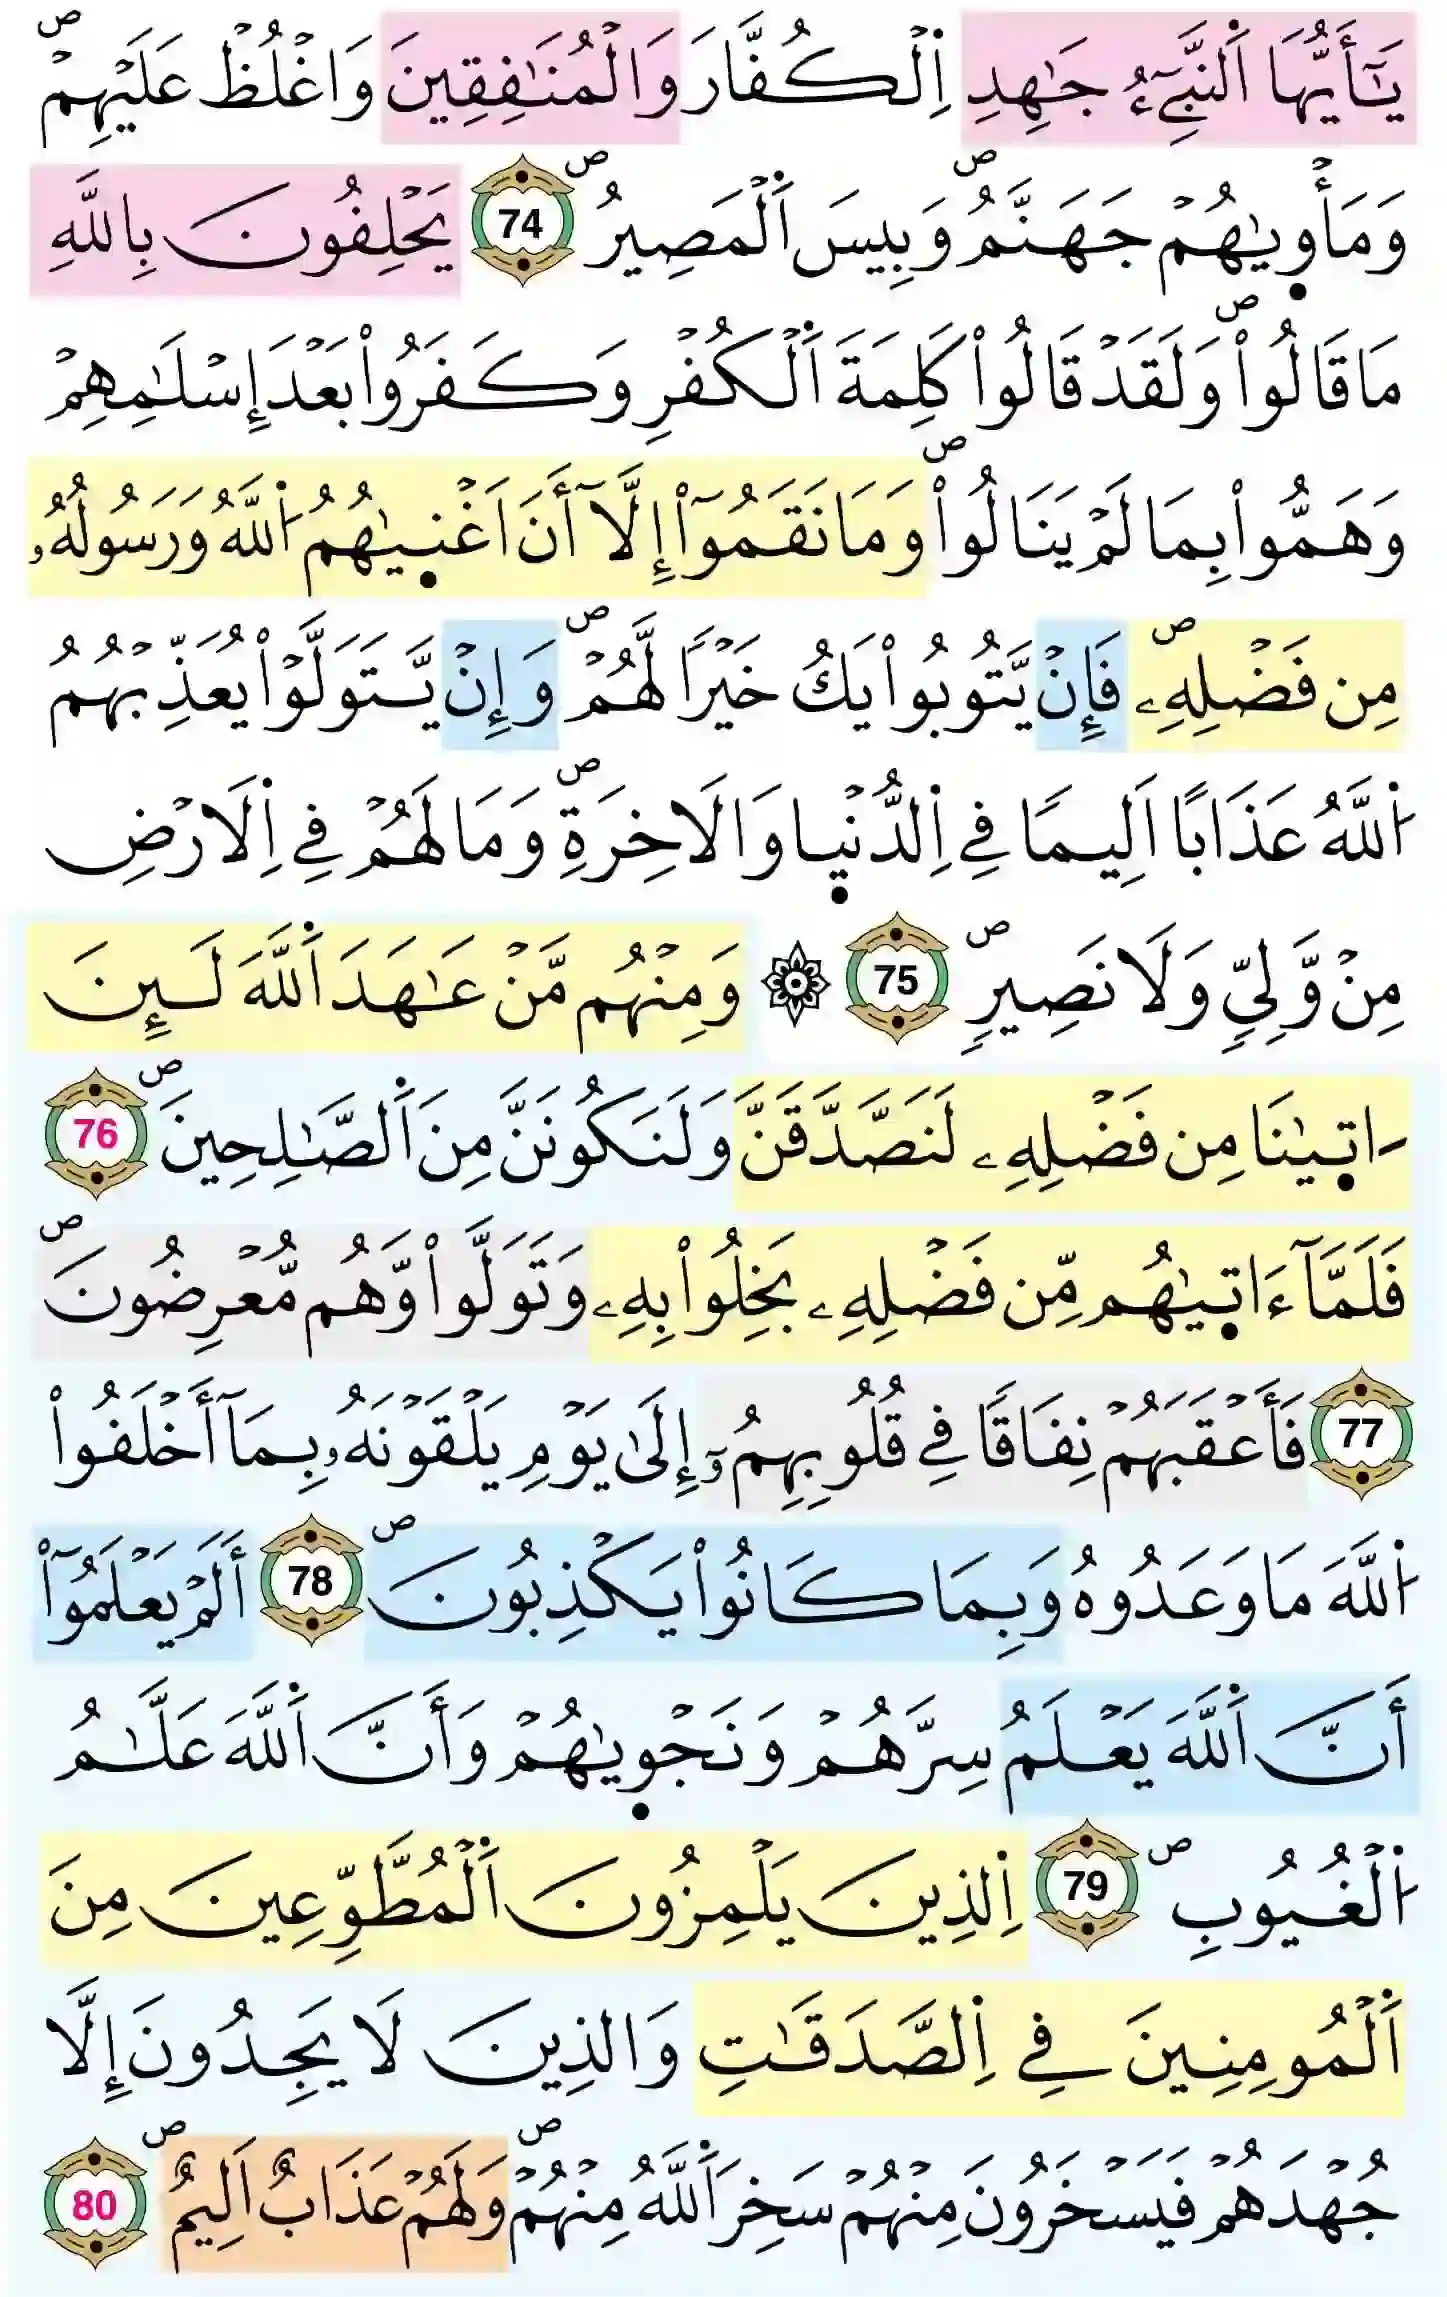 يَٰٓأَيُّهَا اَ۬لنَّبِےٓءُ جَٰهِدِ اِ۬لْكُفَّارَ وَالْمُنَٰفِقِينَ وَاغْلُظْ عَلَيْهِمْۖ
وَمَأْو۪يٰهُمْ جَهَنَّمُۖ وَبِيسَ اَ۬لْمَصِيرُۖ 74 يَحْلِفُونَ بِاللَّهِ
مَا قَالُواْۖ وَلَقَدْ قَالُواْ كَلِمَةَ اَ۬لْكُفْرِ وَكَفَرُواْ بَعْدَ إِسْلَٰمِهِمْ
وَهَمُّواْ بِمَا لَمْ يَنَالُواْۖ وَمَا نَقَمُوٓاْ إِلَّآ أَنَ اَغْن۪يٰهُمُ اُ۬للَّهُ وَرَسُولُهُۥ
مِن فَضْلِهِۦۖ فَإِنْ يَّتُوبُواْ يَكُ خَيْراً لَّهُمْۖ وَإِنْ يَّتَوَلَّوْاْ يُعَذِّبْهُمُ
اُ۬للَّهُ عَذَاباً اَلِيماً فِے اِ۬لدُّنْي۪ا وَالَاخِرَةِۖ وَمَا لَهُمْ فِے اِ۬لَارْضِ
مِنْ وَّلِيّٖ وَلَا نَصِيرٖۖ 75 ۞ وَمِنْهُم مَّنْ عَٰهَدَ اَ۬للَّهَ لَئِنَ
اٰت۪يٰنَا مِن فَضْلِهِۦ لَنَصَّدَّقَنَّ وَلَنَكُونَنَّ مِنَ اَ۬لصَّٰلِحِينَۖ 76
فَلَمَّآ ءَات۪يٰهُم مِّن فَضْلِهِۦ بَخِلُواْ بِهِۦ وَتَوَلَّواْ وَّهُم مُّعْرِضُونَۖ
77 فَأَعْقَبَهُمْ نِفَاقاً فِے قُلُوبِهِمُۥٓ إِلَىٰ يَوْمِ يَلْقَوْنَهُۥ بِمَآ أَخْلَفُواْ
اُ۬للَّهَ مَا وَعَدُوهُ وَبِمَا كَانُواْ يَكْذِبُونَۖ 78 أَلَمْ يَعْلَمُوٓاْ
أَنَّ اَ۬للَّهَ يَعْلَمُ سِرَّهُمْ وَنَجْو۪يٰهُمْ وَأَنَّ اَ۬للَّهَ عَلَّٰمُ
اُ۬لْغُيُوبِۖ 79 اِ۬لذِينَ يَلْمِزُونَ اَ۬لْمُطَّوِّعِينَ مِنَ
اَ۬لْمُومِنِينَ فِے اِ۬لصَّدَقَٰتِ وَالذِينَ لَا يَجِدُونَ إِلَّا
جُهْدَهُمْ فَيَسْخَرُونَ مِنْهُمْ سَخِرَ اَ۬للَّهُ مِنْهُمْۖ وَلَهُمْ عَذَابٌ اَلِيمٌۖ 80